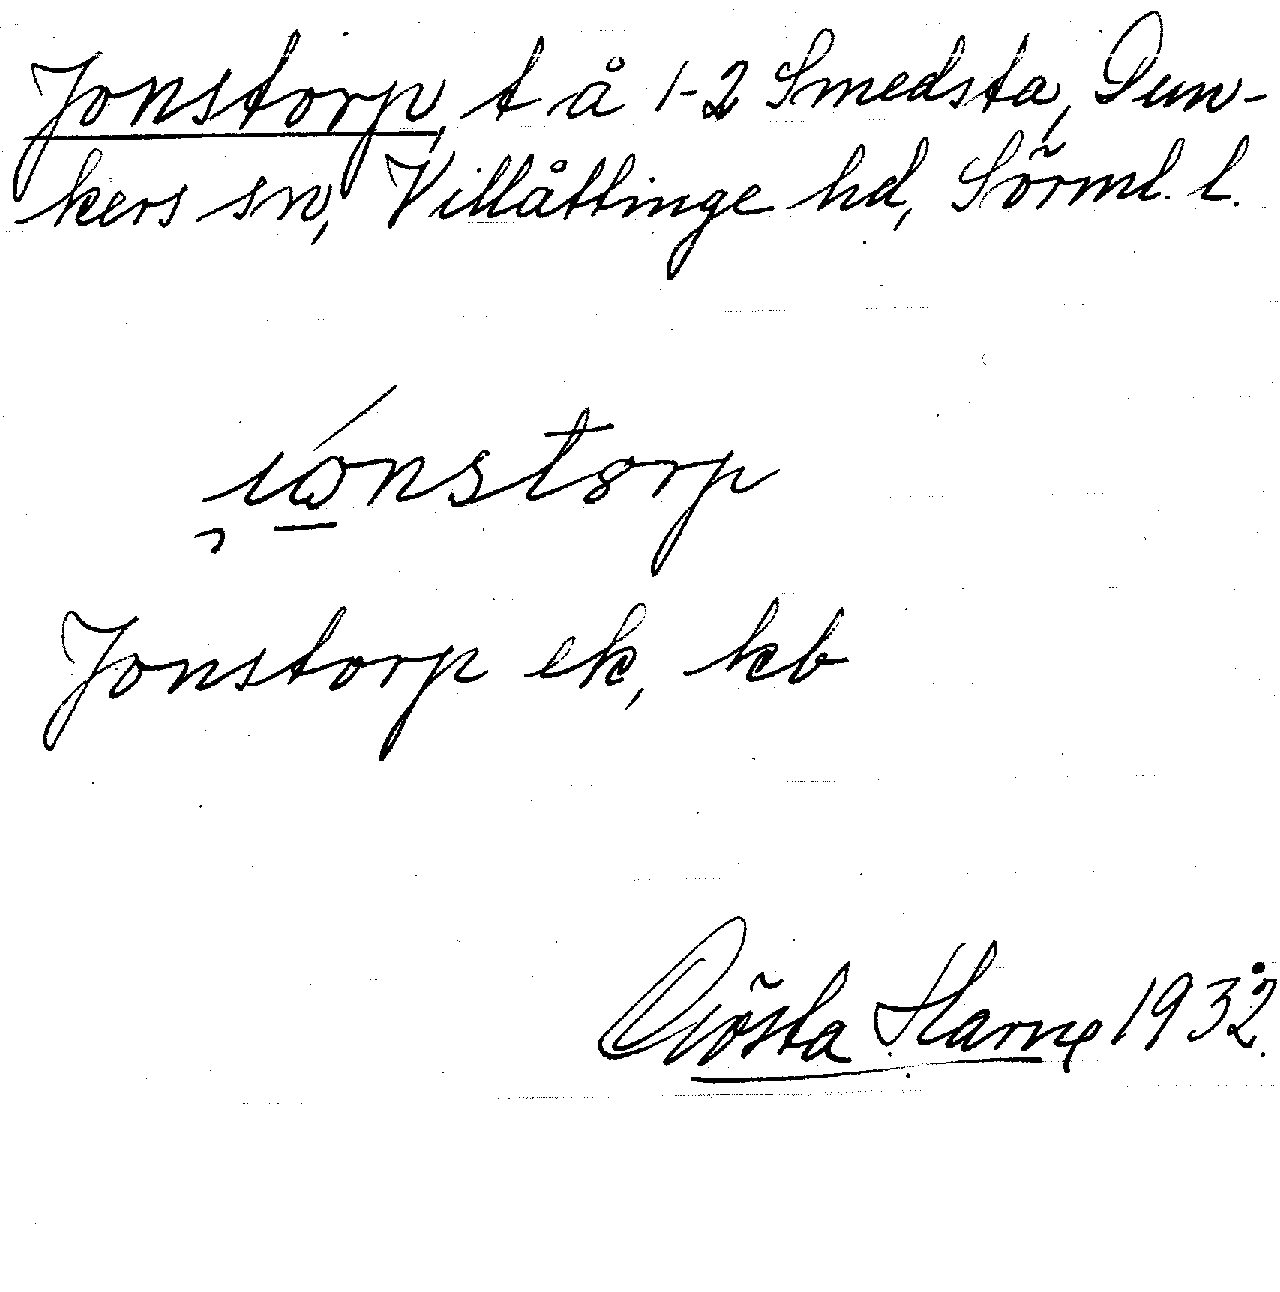 Jonstorp, t å 1-2 Smedsta, Dun-
kers sn, Villåttinge hd, Sörml. l.
Jonstorp ek, kb
Gösta Harne 1932.